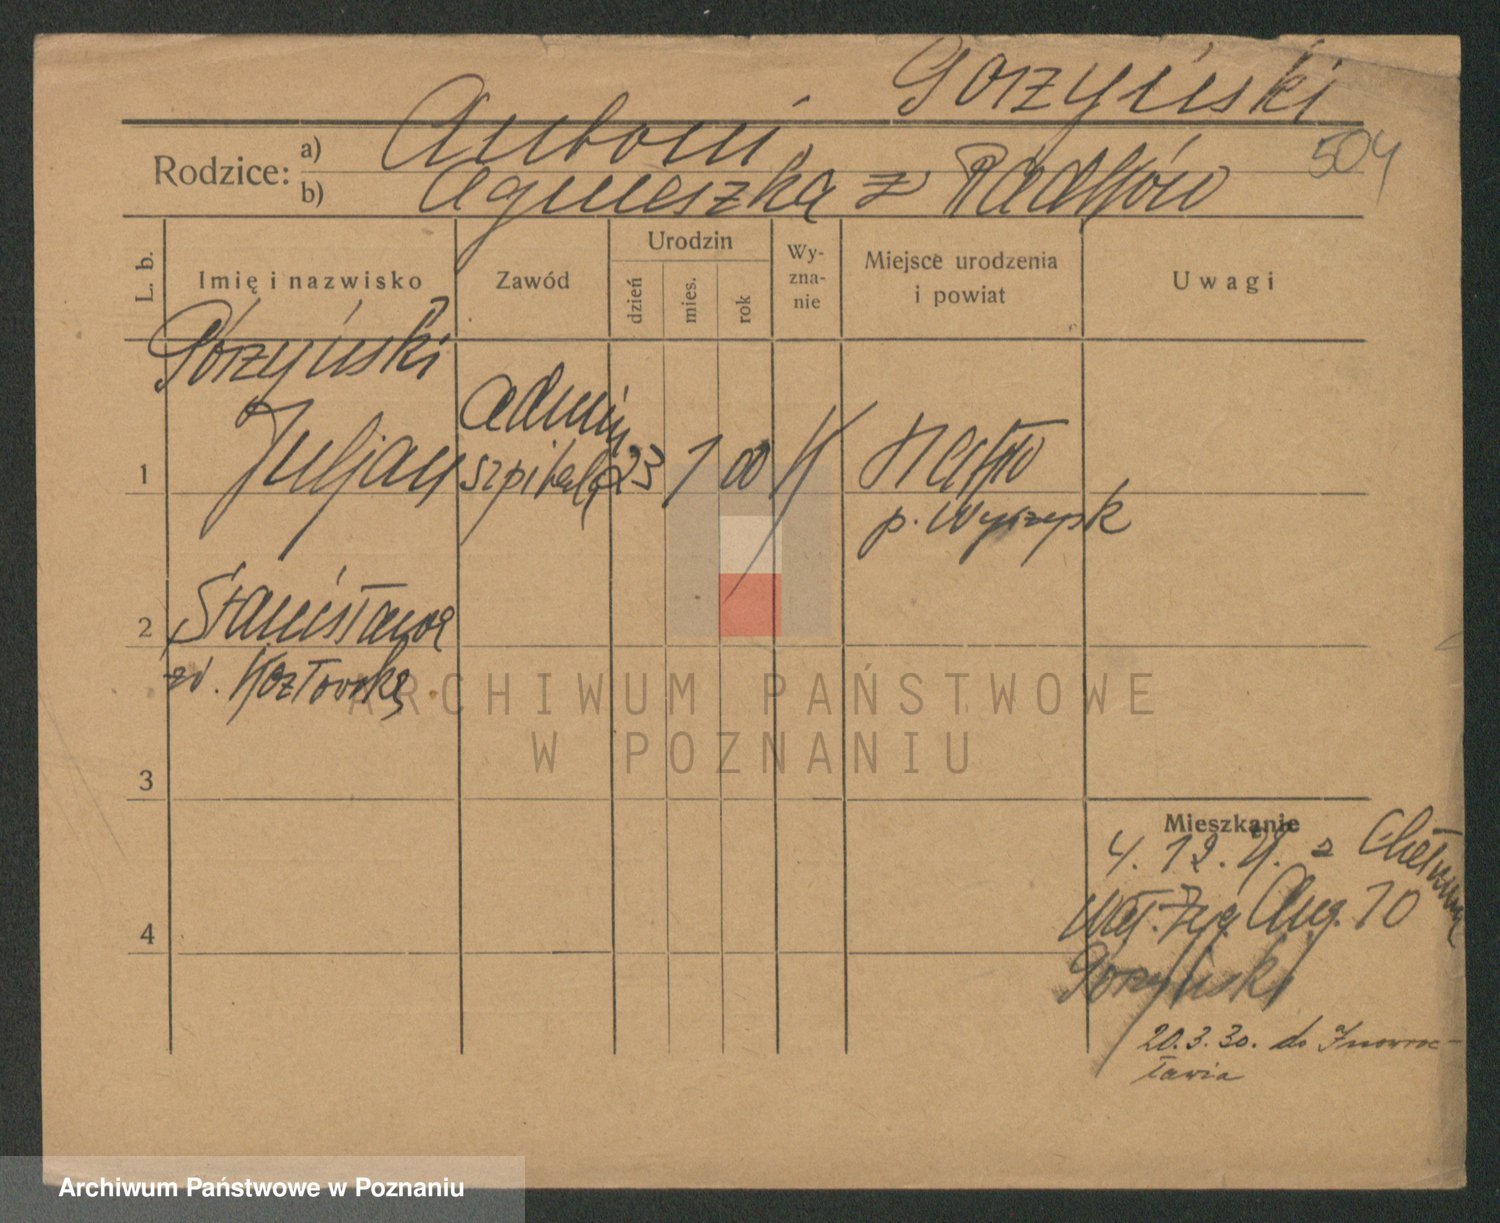 Gorzyński
Rodzice:
a) Antoni
b) Agnieszka z Radków
504
L. b.
Imię i nazwisko
Zawód
Urodzin
dzień
mies.
rok
Wy-
zna-
nie
Miejsce urodzenia
i powiat
Uwagi
Górzyński
1 Juljan
admin
szpitala
23 1 00 K
Nakło
p. Wyrzysk
2 Stanisława
zd. Kozłowska
3
4
Mieszkanie
4. 12. z Chełmna
Zyg. Aug. 10
Gorzyński
20.3.30. do Inowroc-
ławia
ARCHIWUM PAŃSTWOWE
W POZNANIU
Archiwum Państwowe w Poznaniu